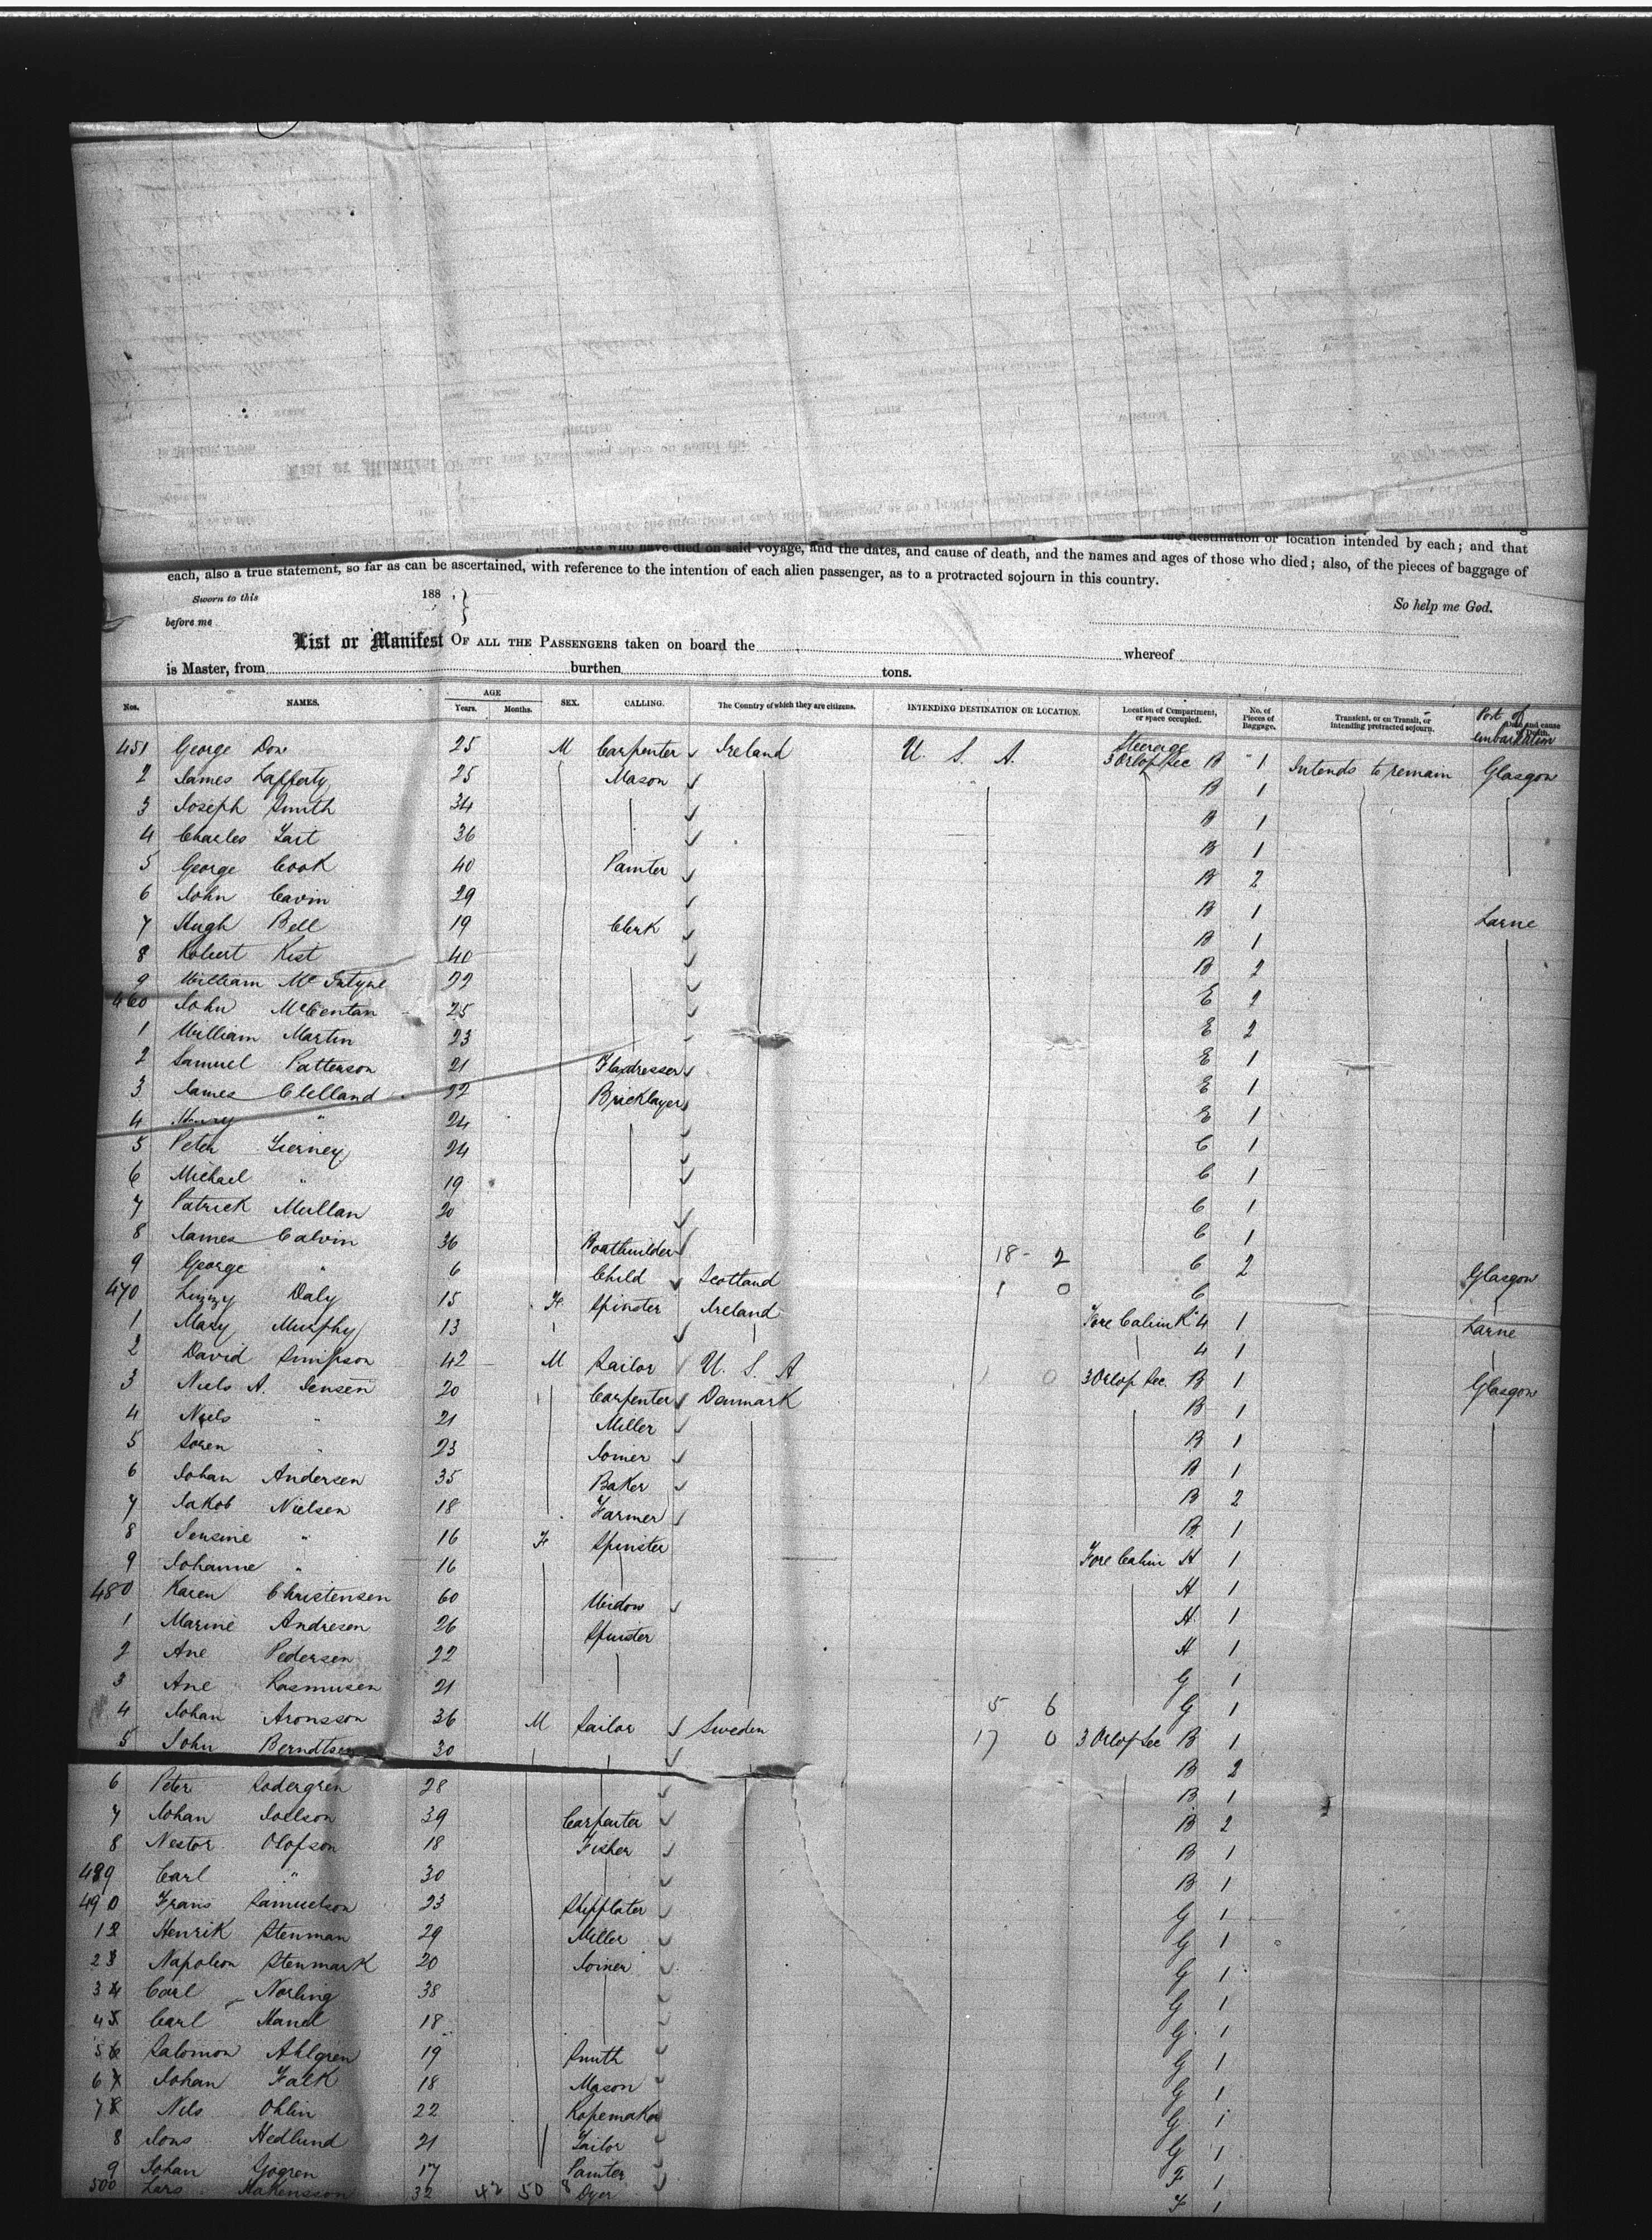 destination or location intended by each; and that
engers who have died on said voyage, and the dates, and cause of death, and the names and ages of those who died; also, of the pieces of baggage of
each, also a true statement, so far as can be ascertained, with reference to the intention of each alien passenger, as to a protracted sojourn in this country.
Sworn to this 188 , }
before me
So help me God.
List or Manifest OF ALL THE PASSENGERS taken on board the whereof
is Master, from burthen tons.
Nos. NAMES. AGE Years. Months. SEX. CALLING. The Country of which they are citizens. INTENDING DESTINATION OR LOCATION. Location of Compartment, or space occupied. No. of Pieces of Baggage. Transient, or en Transit, or intending protracted sojourn. Port of embarkation
451 George Dow 25 M Carpenter Ireland U. S. A. Steerage 3 Orlop Sec B 1 Intends to remain Glasgow
2 James Lafferty 25 Mason B 1
3 Joseph Smith 34 B 1
4 Charles Tait 36 B 1
5 George Cook 40 Painter B 2
6 John Cavin 29 B 1
7 Hugh Bell 19 Clerk B 1 Larne
8 Robert Kist 40 B 2
9 William McIntyre 22 E 2
460 John McCentan 25 E 2
1 William Martin 23 E 1
2 Samuel Patterson 21 Flaxdresser E 1
3 James Clelland 22 Bricklayer E 1
4 Henry " 24 C 1
5 Peter Tierney 24 C 1
6 Michael " 19 C 1
7 Patrick Mullan 20 C 1
8 James Calvin 36 Boatbuilder 18 - 2 C 2 Glasgow
9 George " 6 Child Scotland 1 0 C
470 Lizzy Daly 15 F Spinster Ireland Fore Cabin K 4 1 Larne
1 Mary Murphy 13 4 1
2 David Simpson 42 M Sailor U. S. A 0 3 Orlop Sec. B 1 Glasgow
3 Niels A. Jensen 20 Carpenter Denmark B 1
4 Niels " 21 Miller B 1
5 Soren " 23 Joiner B 1
6 Johan Andersen 35 Baker B 2
7 Jakob Nielsen 18 Farmer B 1
8 Jensine " 16 F Spinster Fore Cabin H 1
9 Johanne " 16 H 1
480 Karen Christensen 60 Widow H 1
1 Marine Andresen 26 Spinster H 1
2 Ane Pedersen 22 G 1
3 Ane Rasmusen 21 5 6 G 1
4 Johan Aronsson 36 M Sailor Sweden 17 0 3 Orlop Sec B 1
5 John Berndtsen 30 B 2
6 Peter Sodergren 28 B 1
7 Johan Joelson 39 Carpenter B 2
8 Nestor Olofson 18 Fisher B 1
489 Carl " 30 B 1
490 Frans Samuelson 23 Shipplater G 1
1 Henrik Stenman 29 Miller G 1
2 Napoleon Stenmark 20 Joiner G 1
3 Carl Norling 38 G 1
4 Carl 18 G 1
5 Salomon Ahlgren 19 Smith G 1
6 Johan Falk 18 Mason G 1
7 Nils Ohlin 22 Ropemaker G 1
8 Jons Hedlund 21 Tailor G 1
9 Johan Sjogren 17 Painter F 1
500 Lars Hakensson 32 42 50 8 Dyer F 1